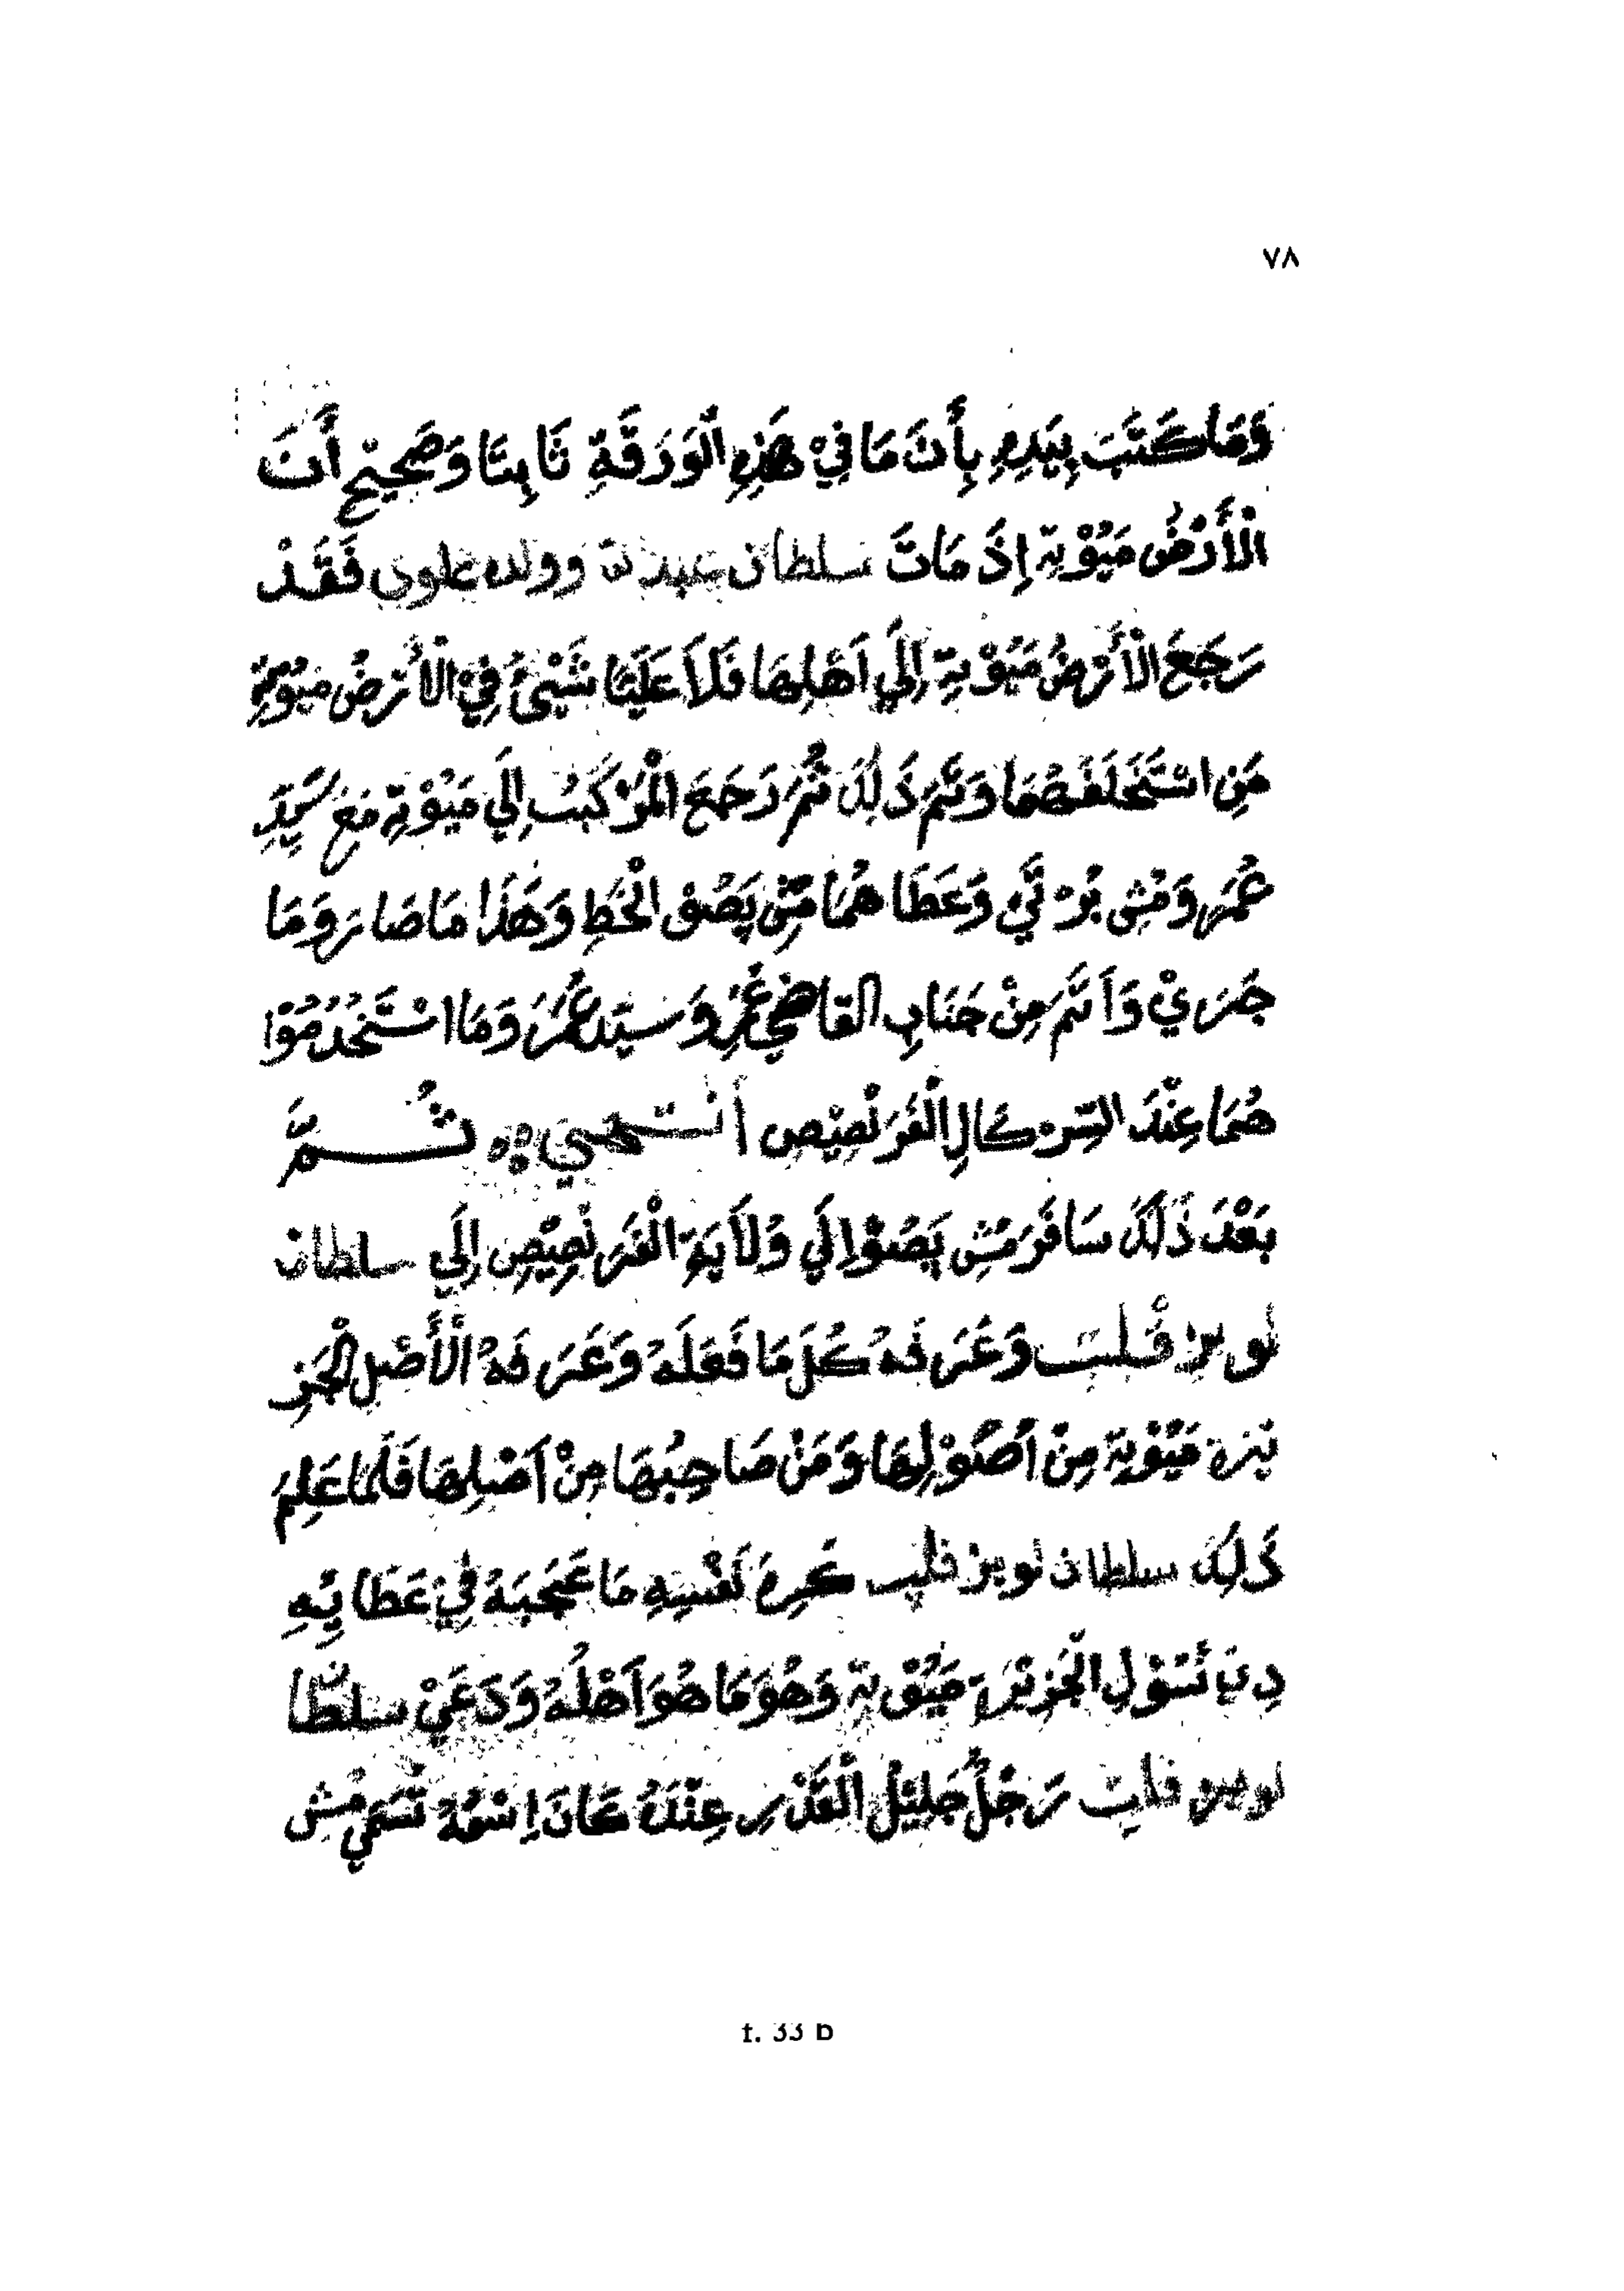 ٧٨
وَمَا كَتَبَ بِيَدِهِ بِأَنَ مَا فِيْ هَذِهِ الْوَرَقَةِ ثَابِتَا وَصَحِيْح أَنَ
الْأَرْضُ مَيُوْتِة إِذَ مَاتَ سلطان عبدلة وولده علوي فَقَدْ
رَجَعَ الْأَرْضُ مَيُوْتِةِ إِلَي اَهْلِهَا فَلَا عَلَيْنَا شَيْئُ فِيْ الْأَرْضُ مَيُوْتِةِ
مَنِ اسْتَخَلَفَهُمَا وَتَمَ ذَلِكَ ثُمَّ رَجَعَ الْمَرْكَبُ إِلَي مَيُوْتِةِ مَعَ سَيِّدِ
عُمَرَ وَمُشِ بُرْ نَّيِ وَعَطَا هُمَا مُشِ پَصُوْ الْخَطِ وَهَذَا مَا صَارَ وَمَا
جَرَيْ وَاَتَمَ مِنْ جَنَابِ القَاضِي عُمَرِ وَسَيّد عُمَرُ وَمَا اسْتَخْدُمُوْا
هُمَا عِنْدَ السِّرْكَالِ الْفَرَنْصِيْصِ أنتهي ثُمَّ
بَعْدَ ذَلَكَ سَافَرَ مُشِ پَصُوْ اِلَي وُلَايَةِ الْفَرَنْصِيْصِ إِلَي سلطان
لويز فْلب وَعَرَفَهُ كُلَ مَا فَعَلَهُ وَعَرَفَهُ الْأَصْلِ الْجَزِ
يْرَة مَيُوْتِة مِنْ اُصُوْلِهَا وَمَنْ صَاحِبُهَا مِنْ اَصْلِهَا فَلَمَا عَلِمَ
ذَلِكَ سلطان لويز فلپ كَرِهَ لَفْسِهِ مَا عَجَبَهُ فِيْ عَطَايِهِ
دِبَ نُسُوْلِ الْجَزِيْرَة مَيُوْتِة وَهُوَ مَا هُوَ اَهْلُهُ وَدَعَيْ سلطان
لويز فلپ رَجُلٌ جَلِيْلُ الْقَدْرِ عِنْدَهُ كَانَ اِسْمُهُ تُسَمِيْ مُشِ
f. 33 b